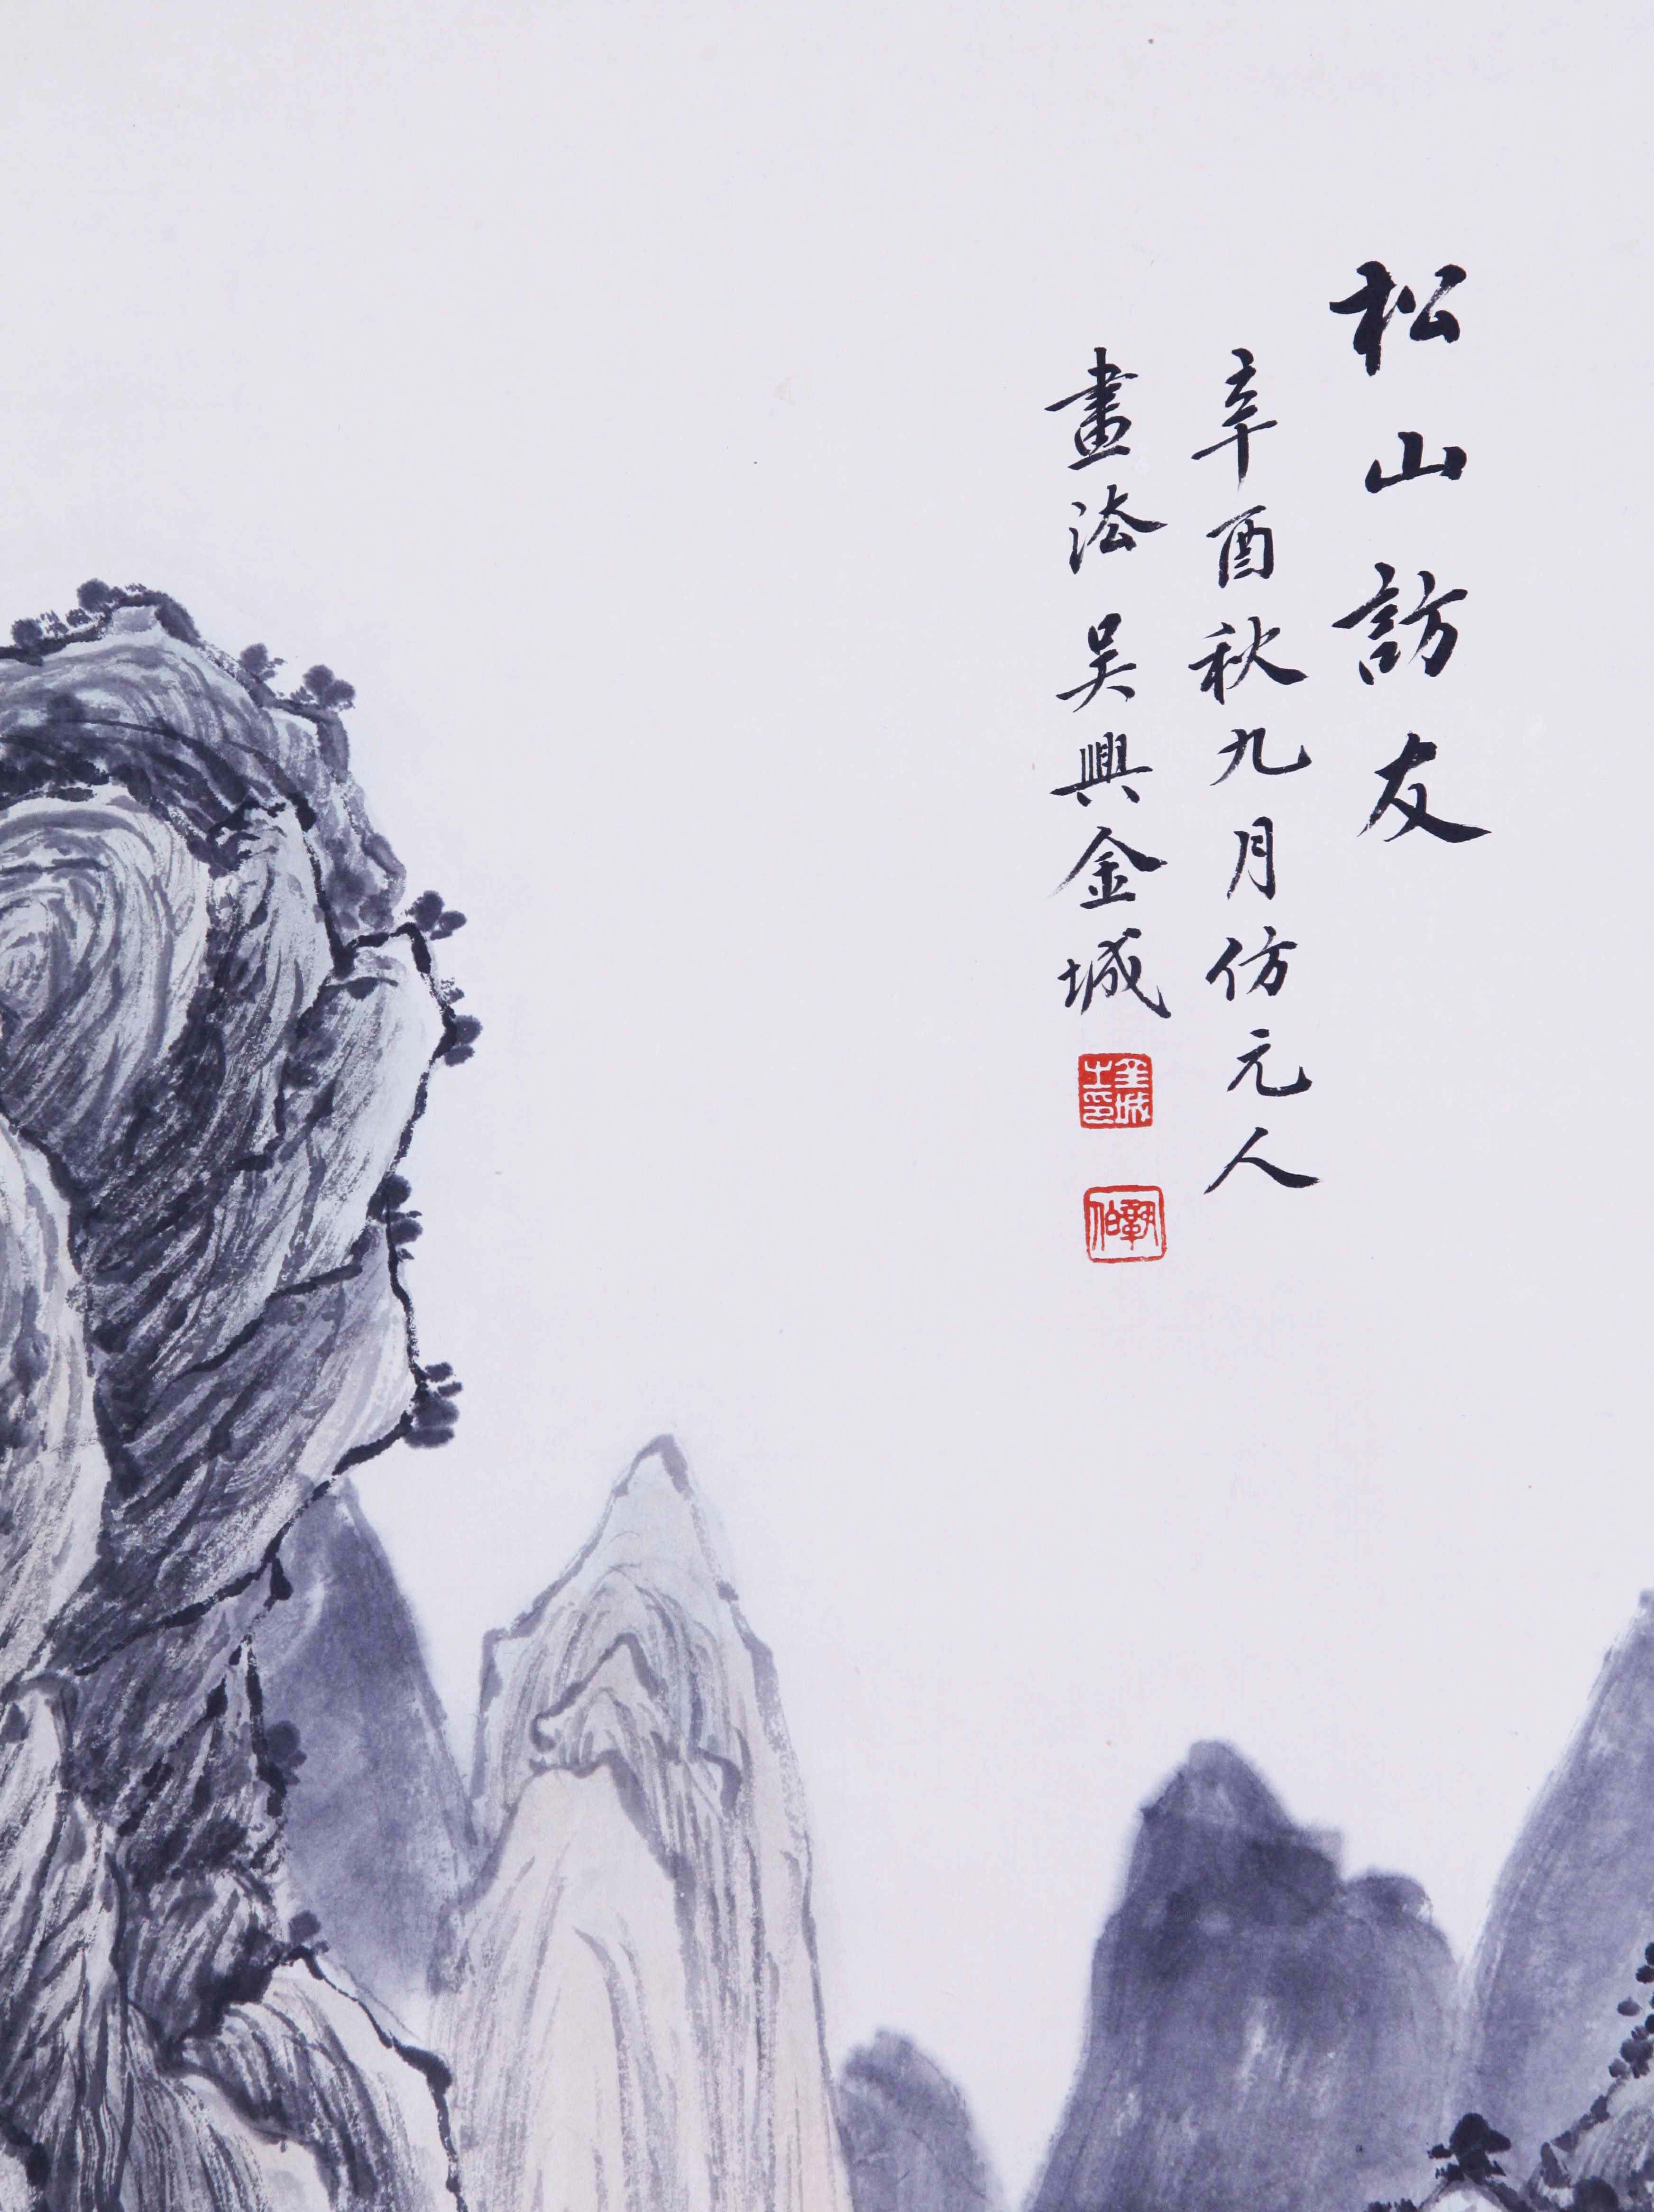 松山訪友
辛酉秋九月仿元人
畫法吳興金城
金城之印